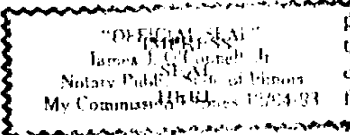 "OFFICIAL SEAL"
IMPRESS
James J. O'Connell, Jr
SEAL
Notary Public, State of Illinois
HERE
My Commission Expires 12/04/93